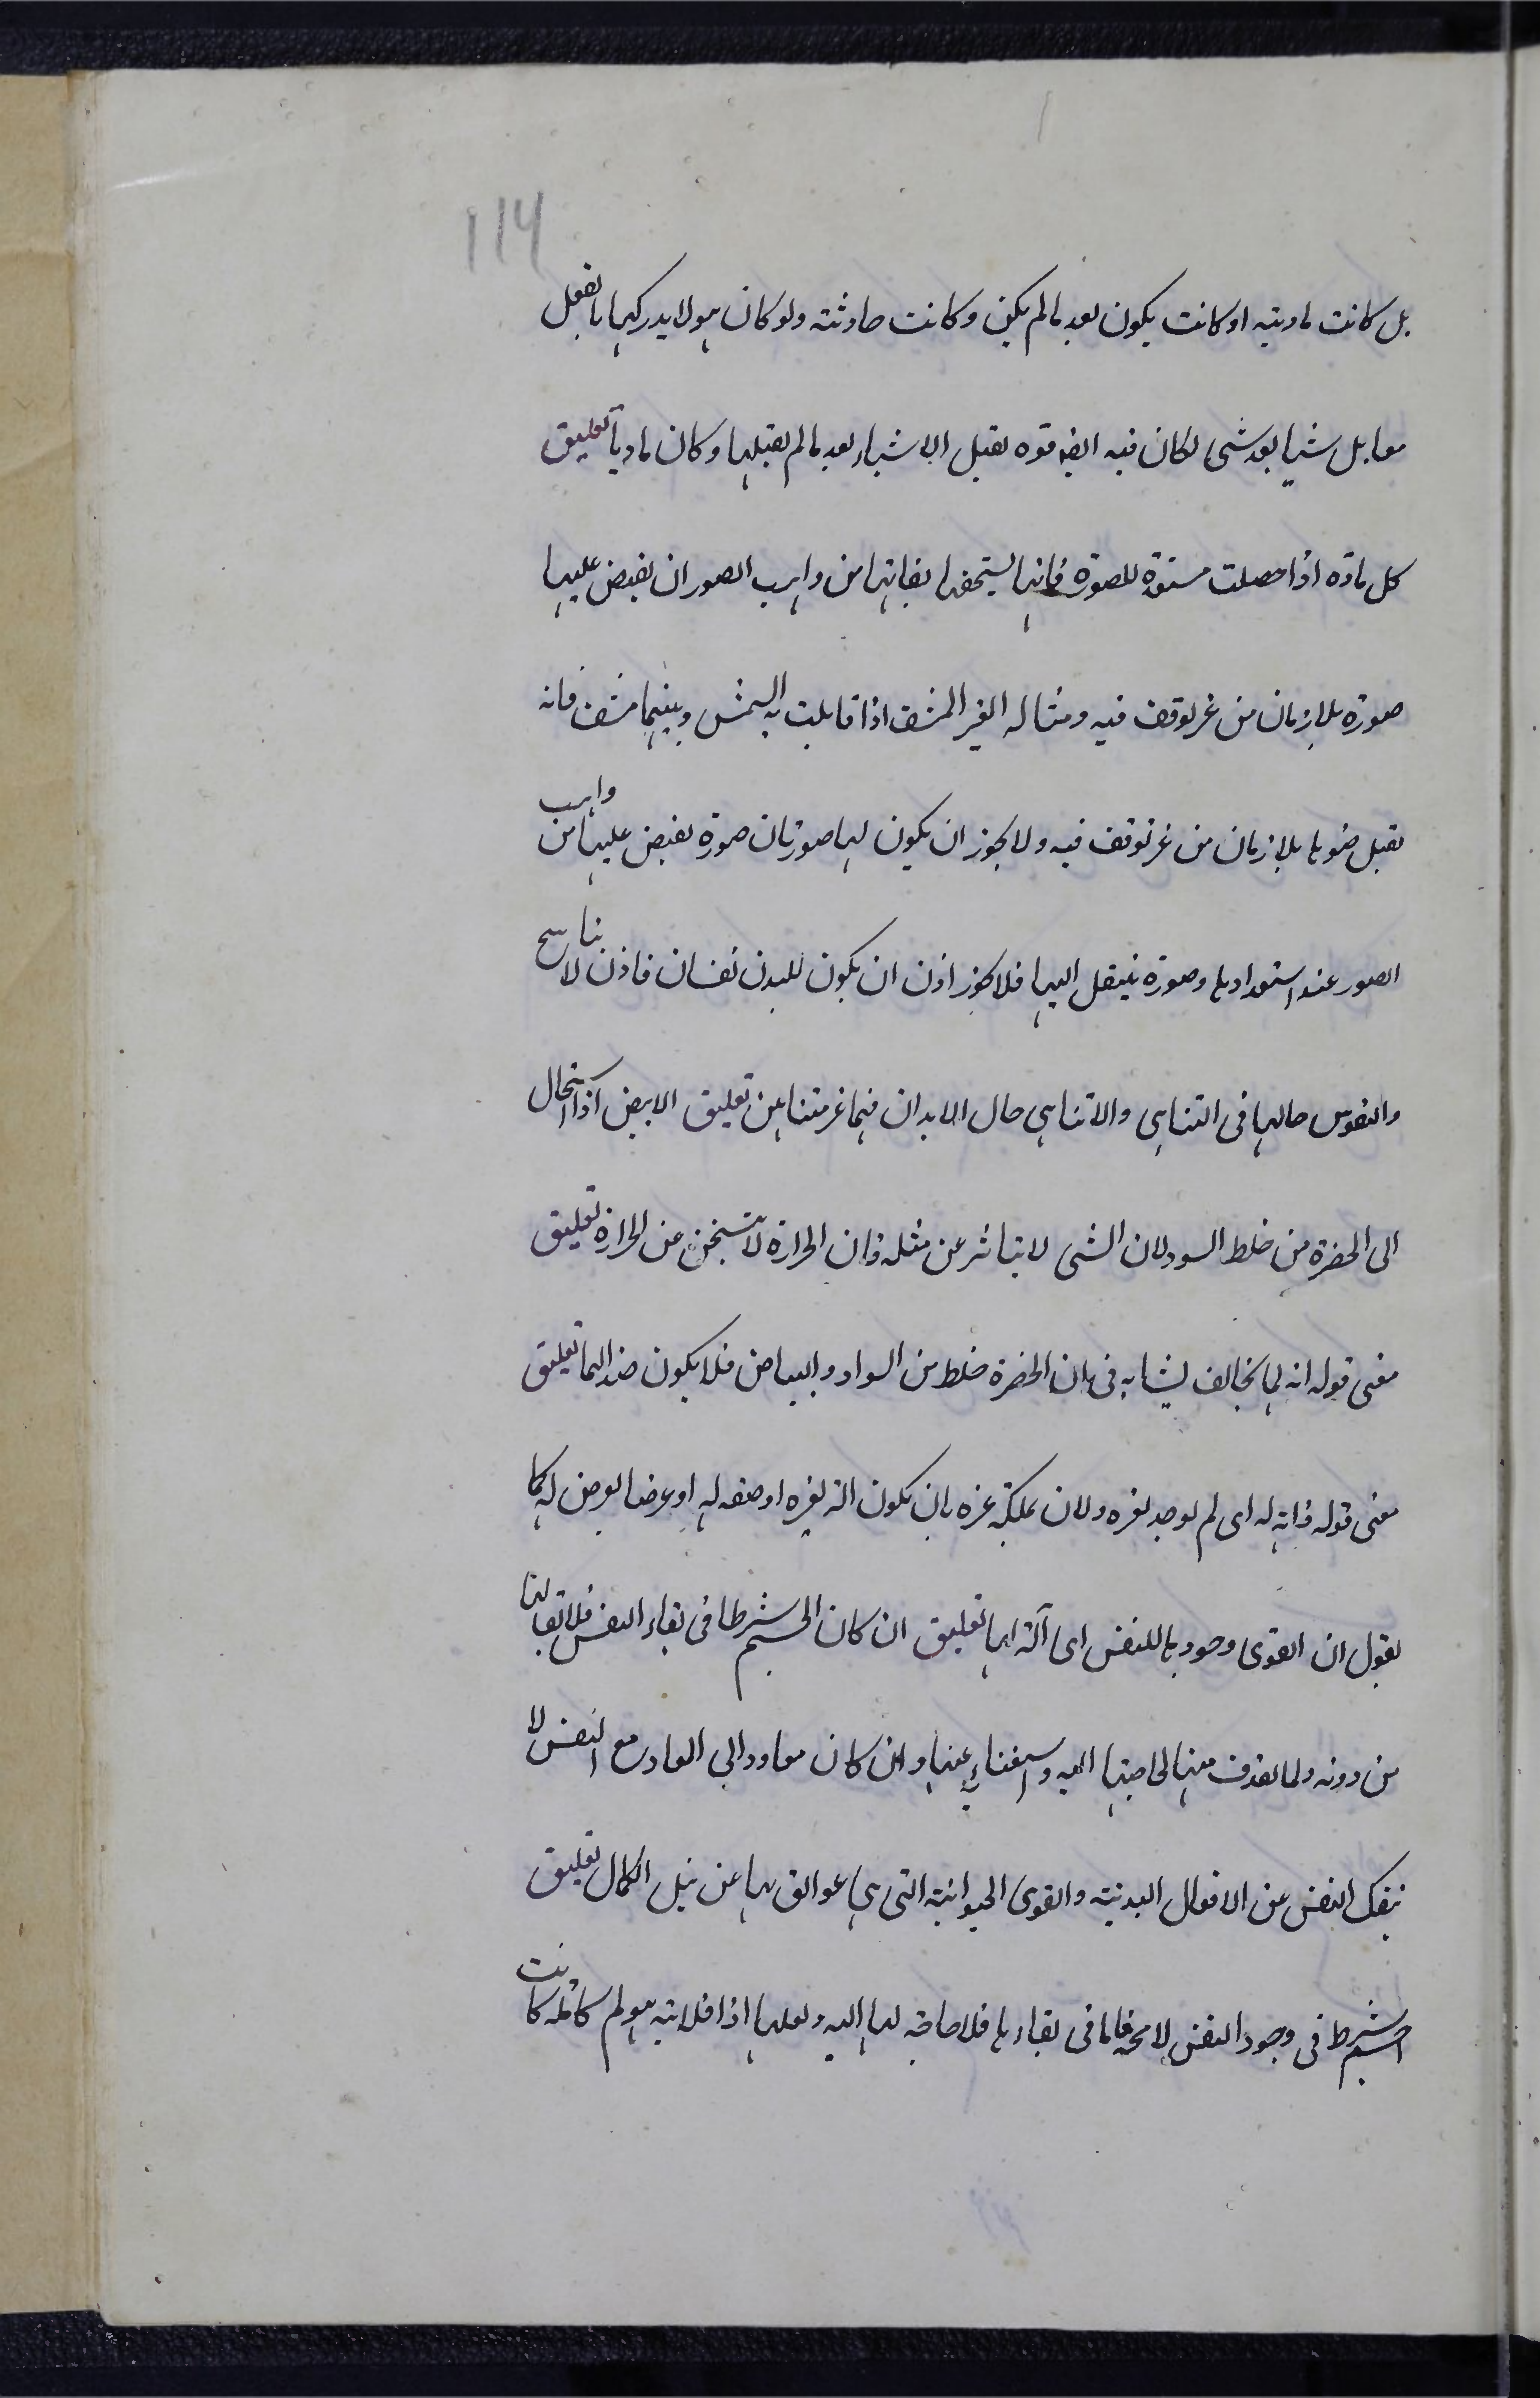 114
بل كانت ماديته او كانت يكون بعد مالم يكن وكانت حادثته ولو كان هو لا يدركها بالفعل
معا بل شيا بعد شى لكان فيه ايضا قوه تقبل الاشياء بعد مالم يقبلها وكان ماديا تعليق
كل ماده اذا حصلت مستعدة للصورة فانها يستحقها بذاتها من واهب الصور ان يفيض عليها
صورة بلا زمان من غير توقف فيه ومثاله الغير المشف اذا قابلت به الشمس وبينهما مشف فانه
يقبل ضوءها بلا زمان من غير توقف فيه ولا يجوز ان يكون لها صورتان صورة يفيض عليها من واهب
الصور عند استعدادها وصورة ينتقل اليها فلا يجوز اذن ان يكون للبدن نفسان فاذن لا تناسخ
والنفوس حالها فى التناهى والاتناهى حال الابدان فيما غير متناهين تعليق الابيض اذا استحال
الى الخضرة من خلط السود لان الشى لا يتاثر عن مثله فان الحرارة لا تتسخن عن الحرارة تعليق
معنى قوله انه لما يخالف يشابه فى بان الخضرة خلط من السواد والبياض فلا يكون ضدا لهما تعليق
معنى قوله ذاته له اى لم يوجد لغيره ولان يملكه غيره بان يكون الة لغيره او صفه له او عرضا يعرض له كما
يقول ان القوى وجودها للنفس اى آلة لها تعليق ان كان الجسم شرطا فى بقاء النفس فلا بقا لها
من دونه ولما يعرف منها لحاجتها اليه واستغناءه عنها وان كان معاودا الى المعاد مع النفس لا
ينفك النفس عن الافعال البدنية والقوى الحيوانية التى هى عوائق لها عن نيل الكمال تعليق
الجسم شرط فى وجود النفس لا محه فاما فى بقاءها فلا حاجة لها اليه ولعلها اذا فارقته ولم كاملة كانت